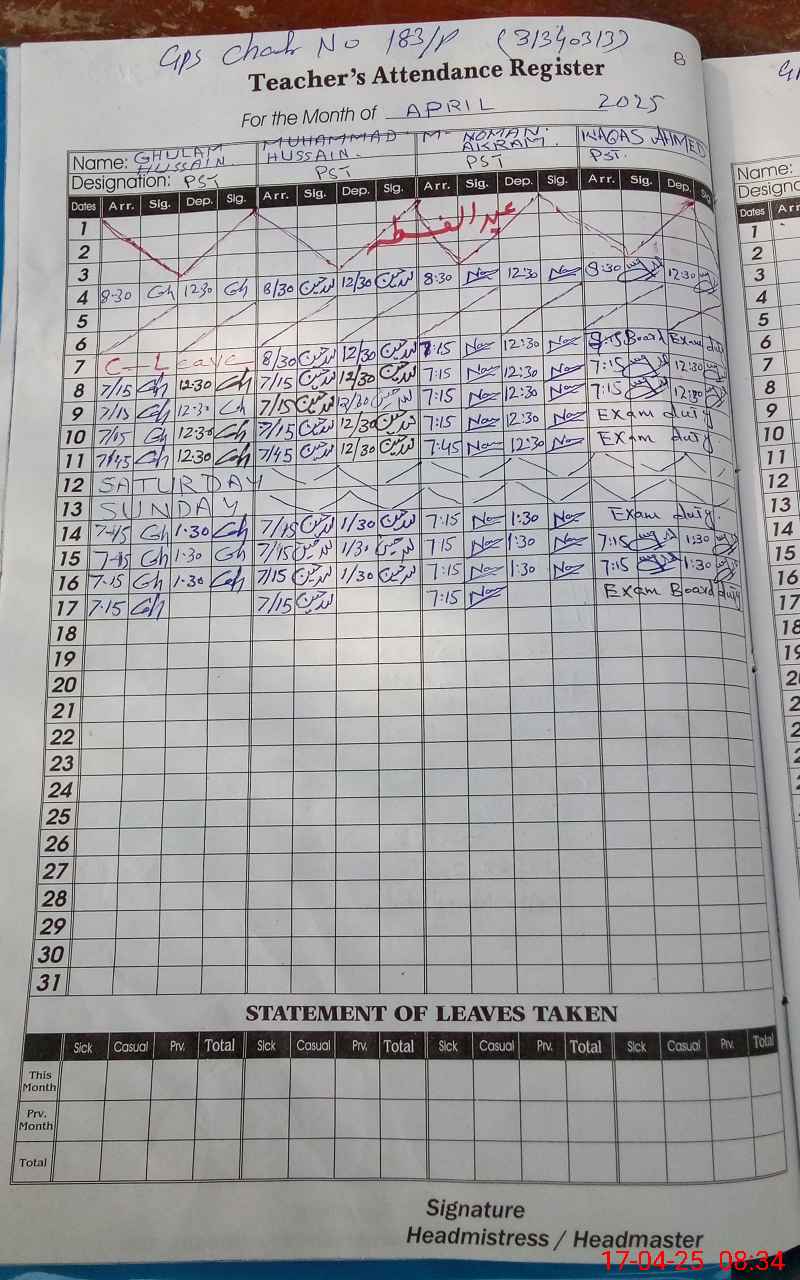 GPS Chak No 183/P (31340313)
B
Teacher's Attendance Register
For the Month of APRIL 2025
Name: GHULAM HUSSAIN MUHAMMAD HUSSAIN. M. NOMAN AKRAM. WAQAS AHMED
Designation: PST PST PST PST.
Dates Arr. Sig. Dep. Sig. Arr. Sig. Dep. Sig. Arr. Sig. Dep. Sig. Arr. Sig. Dep. Sig
1 عيد الفطر
2
3
4 8-30 Gh 12-30 Gh 8/30 12/30 8:30 12:30 8:30 12:30
5
6
7 C-Leave 8/30 12/30 7:15 12:30 Board Exam duty
8 7/15 Gh 12:30 Gh 7/15 12/30 7:15 12:30 7:15 12:30
9 7/15 Gh 12-30 Gh 7/15 12/30 7:15 12:30 7:15 12:30
10 7/15 Gh 12:30 Gh 7/15 12/30 7:15 12:30 Exam duty
11 7/45 Gh 12:30 Gh 7/45 12/30 7:45 12:30 Exam duty.
12 SATURDAY
13 SUNDAY
14 7-15 Gh 1.30 Gh 7/15 1/30 7:15 1:30 Exam duty.
15 7-15 Gh 1.30 Gh 7/15 1/30 7:15 1:30 7:15 1:30
16 7.15 Gh 1.30 Gh 7/15 1/30 7:15 1:30 7:15 1:30
17 7.15 Gh 7/15 7:15 Exam Board duty
18
19
20
21
22
23
24
25
26
27
28
29
30
31
STATEMENT OF LEAVES TAKEN
Sick Casual Prv. Total Sick Casual Prv. Total Sick Casual Prv. Total Sick Casual Prv. Total
This Month
Prv. Month
Total
Signature
Headmistress / Headmaster
17-04-25 08:34
Name:
Dates Arr
1
2
3
4
5
6
7
8
9
10
11
12
13
14
15
16
17
18
19